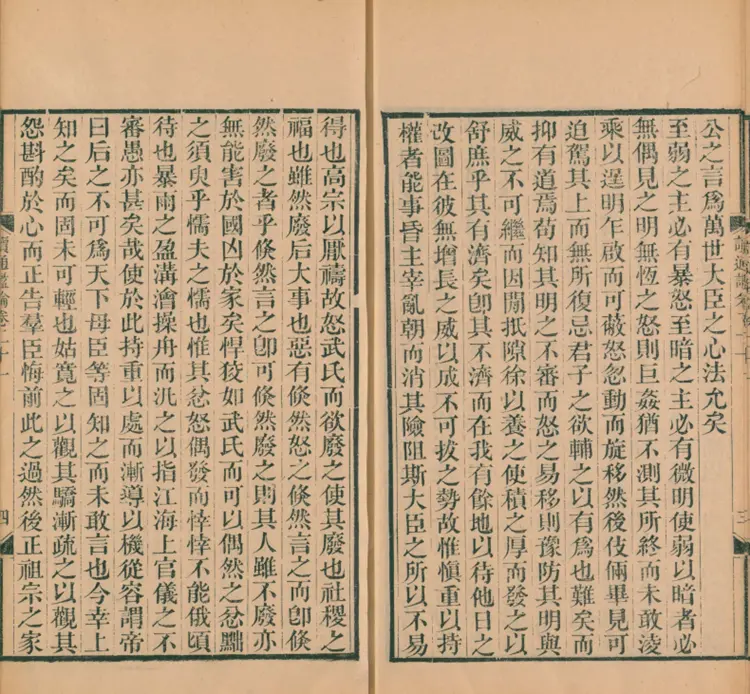 三
公之言爲萬世大臣之心法允矣
至弱之主必有暴怒至暗之主必有微明使弱以暗者必
無偶見之明無恆之怒則巨姦猶不測其所終而未敢淩
乘以逞明乍啟而可蔽怒忽動而旋移然後伎倆畢見可
迫駕其上而無所復忌君子之欲輔之以有爲也難矣而
抑有道焉苟知其明之不審而怒之易移則豫防其明與
威之不可繼而因閒抵隙徐以養之使積之厚而發之以
舒庶乎其有濟矣卽其不濟而在我有餘地以待他日之
改圖在彼無增長之威以成不可拔之勢故惟愼重以持
權者能事昏主宰亂朝而消其險阻斯大臣之所以不易
得也高宗以厭禱故怒武氏而欲廢之使其廢也社稷之
福也雖然廢后大事也惡有倏然怒之倏然言之而卽倏
然廢之者乎倏然言之卽可倏然廢之則其人雖不廢亦
無能害於國凶於家矣悍狡如武氏而可以偶然之忿黜
之須臾乎懦夫之懦也惟其忿怒偶發而悻悻不能俄頃
待也暴雨之盈溝澮操舟而汎之以指江海上官儀之不
審愚亦甚矣哉使於此持重以處而漸導以機從容謂帝
曰后之不可爲天下母臣等固知之而未敢言也今幸上
知之矣而固未可輕也姑寬之以觀其驕漸疏之以觀其
怨斟酌於心而正告羣臣悔前此之過然後正祖宗之家
讀通鑑論卷二十一
四